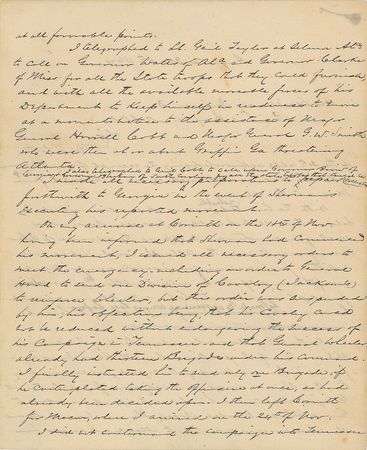 at all favorable points.
I telegraphed to Lt. Genl Taylor at Selma Ala
to call on Governor Watts of Ala and Governor Clarke
of Miss. for all the State troops that they could furnish
and with all the available movable forces of his
Department to keep himself in readiness to move
at a moments notice to the assistance of Major
General Howell Cobb and Major General G. W. Smith
who were then at or about Griffin Ga threatening
Atlanta.
I also telegraphed to Genl Cobb to call upon Governor Brown of
Georgia Governor of South Carolina
made all necessary to
forthwith to Georgia in the event of Sherman
executing his reported movement.
On my arrival at Corinth on the 18th of Nov.
having been informed that Sherman had commenced
his movement, I issued all necessary orders to
meet the emergency including an order to General
Hood to send one Division of Cavalry (Jackson's)
to reinforce Wheeler, but this order was suspended
by him, his objections being, that his Cavalry could
not be reduced without endangering the success of
his Campaign in Tennessee and that General Wheeler
already had thirteen Brigades under his command.
I finally instructed him to send only one Brigade, if
he contemplated taking the offensive at once, as had
already been decided upon. I then left Corinth
for Macon, where I arrived on the 24th of Nov.
I did not countermand the campaign into Tennessee